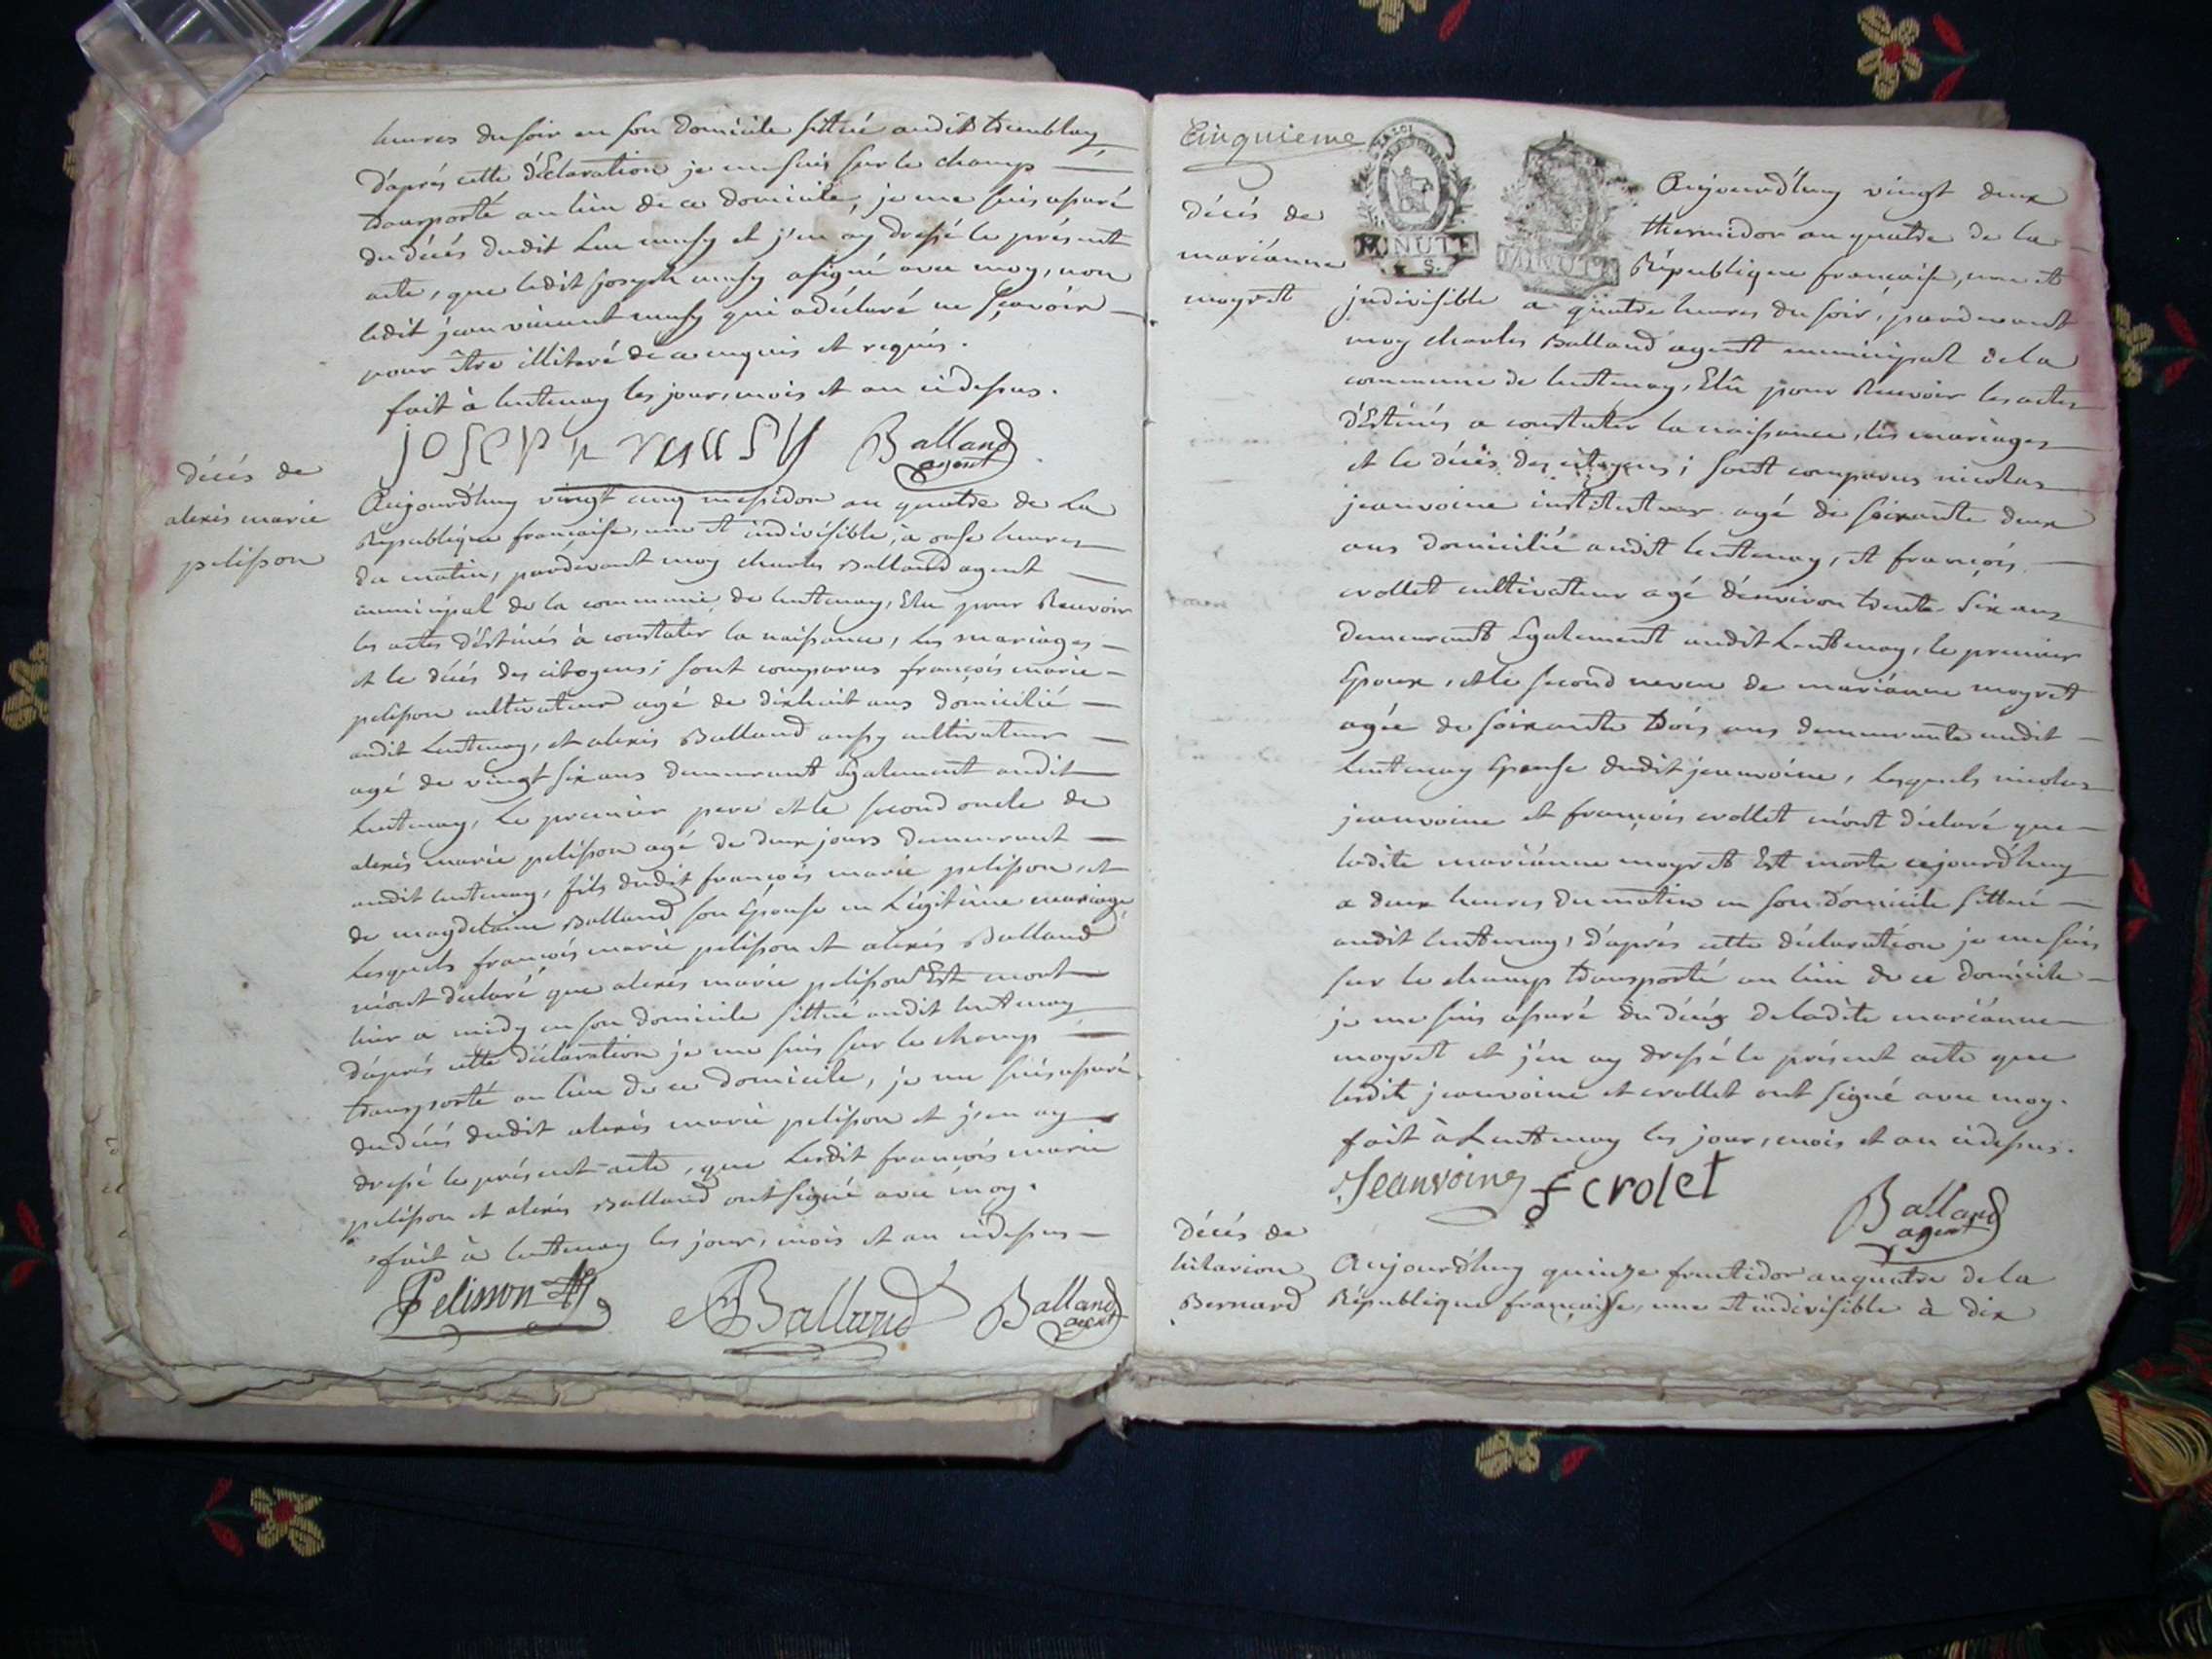 heures du soir en son domicile sittué audit tremblay
d'aprés cette déclaration je me suis sur le champ
transporté au lieu de ce domicile, je me suis assuré
du décés dudit Luc musy et j'en ay dressé le présent
acte, que ledit joseph musy a signé avec moy, non
ledit jean vincent musy qui a déclaré ne sçavoir
pour être illiteré de ce enquis et requis.
fait à lentenay les jour, mois et an cidessus.
joseph musy Balland
agent
décés de
alexis marie
pelisson
Aujourd'huy vingt cinq messidor an quatre de La
République françaisse, une et indivisible, à onse heures
du matin, pardevant moy charles Balland agent
municipal de la commune de lentenay, Elu pour Recevoir
les actes d'Estinés à constater la naissance, les mariages
et le décés des citoyens; sont comparus françois marie
pelisson cultivateur agé de dixhuit ans domicilié
audit Lentenay, et alexis Balland aussy cultivateur
agé de vingt six ans demeurant Egalement audit
Lentenay, Le premier pere et le second oncle de
alexis marie pelisson agé de deux jours demeurant
audit lentenay, fils dudit françois marie pelisson, et
de magdelaine Balland son Epouse en Légitime mariage,
Lesquels françois marie pelisson et alexis Balland
m'ont déclaré que alexis marie pelisson Est mort
hier a midy en son domicile sittué audit lentenay
d'aprés cette déclaration je me suis sur le champ
transporté au lieu de ce domicile, je me suis assuré
du décés dudit alexis marie pelisson et j'en ay
dressé le présent acte, que Lesdit françois marie
pelisson et alexis Balland ont signé avec moy.
fait à lentenay les jour, mois et an cidessus
Pelisson A Balland Balland
agent
Cinquieme
LA LOI
MINUTE
S.
MINUTE
décés de
mariánne
moyret
Aujourd'huy vingt deux
thermidor an quatre de la
République françaisse, une et
jndivisible a quatre heures du soir, pardevant
moy charles Balland agent municipal de la
commune de lentenay, Elû pour Recevoir les actes
d'Estinés a constater la naissance, les mariages
et le décés des citoyens; sont comparus nicolas
jeanvoine instituteur agé de soixante deux
ans domicilié audit lentenay, et françois
crollet cultivateur agé d'environ trente six ans
demeurant Egalement audit Lentenay, le premier
Epoux, et le second neveu de mariánne moyret
agée de soixante trois ans demeurante audit
lentenay Epouse dudit jeanvoine, Lesquels nicolas
jeanvoine et françois crollet m'ont déclaré que
ladite mariánne moyret Est morte cejourd'huy
a deux heures du matin en son domicile sittué
audit lentenay, d'aprés cette déclaration je me suis
sur le champ transporté au lieu de ce domicile
je me suis assuré du décés de ladite mariánne
moyret et j'en ay dressé le présent acte que
lesdits jeanvoine et crollet ont signé avec moy.
fait à Lentenay les jour, mois et an cidessus.
Jeanvoine f crolet Balland
agent
décés de
hilarion
Bernard
Aujourd'huy quinze fructidor an quatre de la
République françaisse, une et indivisible à dix